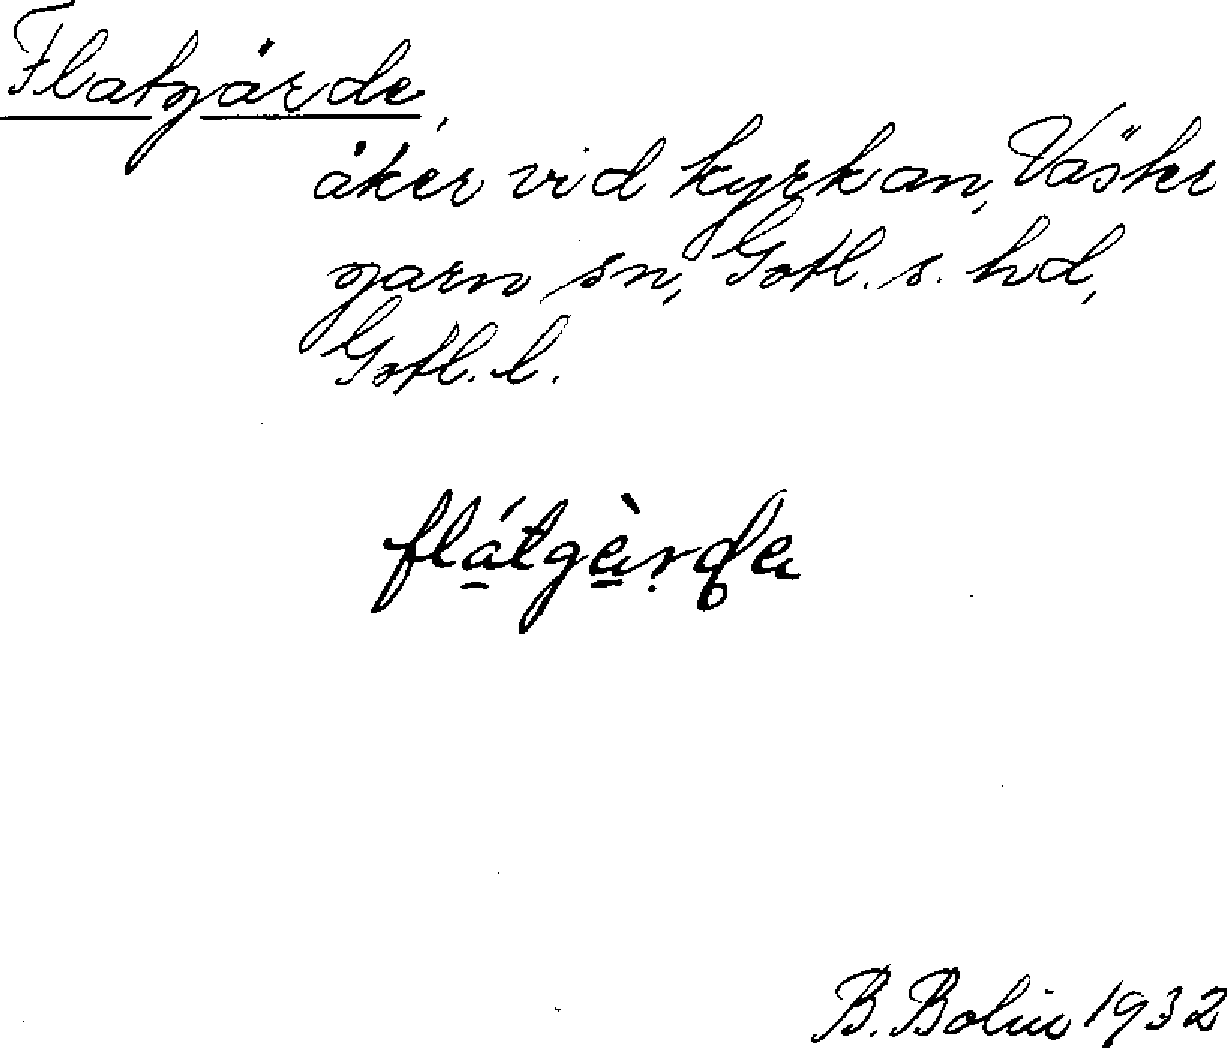 Flatgärde,
åker vid kyrkan, Väster
garn sn, Gotl. s. hd,
Gotl. l.
flátgèrde
B. Bolin 1932